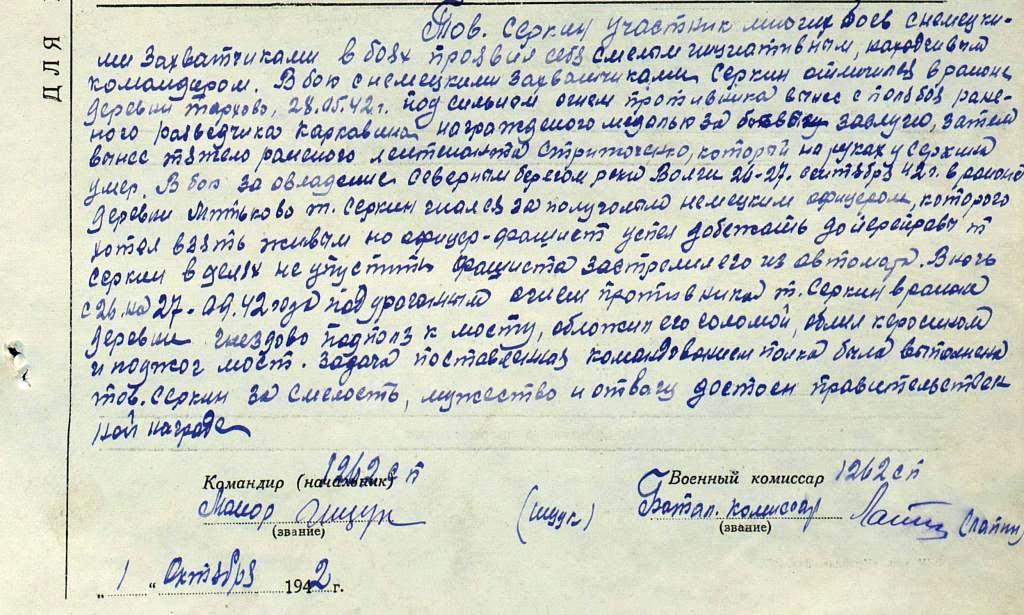 Тов. Серкин участник многих боев с немецки-
ми захватчиками в боях проявил себя смелым инициативным, находчивым
командиром. В бою с немецкими захватчиками Серкин отличился в районе
деревни 28.05.42 г. под сильным огнем противника вынес с поля боя ране-
ного разведчика Каркавина награжденого медалью за боевые заслуги, затем
вынес тяжело раненого лейтенанта который на руках у Серкина
умер. В бою за овладение северным берегом реки Волги 26-27. сентября 42 г. в районе
деревни Митьково т. Серкин гнался за полуголым немецким офицером, которого
хотел взять живым но офицер-фашист успел добежать до переправы т
Серкин в целях не упустить фашиста застрелил его из автомата. В ночь
с 26 на 27-09.42 года под ураганным огнем противника т. Серкин в районе
деревни Гнездово подполз к мосту, обложил его соломой, облил керосином
и поджог мост. Задача поставленная командованием полка была выполнена
тов. Серкин за смелость, мужество и отвагу достоен правительствен
ной награде
ДЛЯ
Командир (начальник) 1262 сп
Военный комиссар 1262 сп
Майор Ищук (Ищук)
Батал. комиссар Лапин (Лапин)
(звание)
(звание)
„ 1 “ Октября 1942 г.